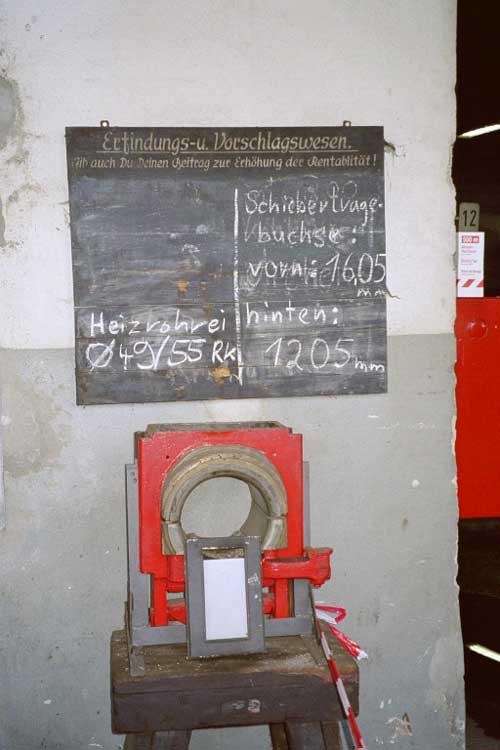 Erfindungs-u. Vorschlagswesen.
Gib auch Du Deinen Beitrag zur Erhöhung der Rentabilität!
Schiebertrage-
buchse:
vorn: 16,05
mm
hinten:
1205mm
Heizrohrei
Ø49/55 Rk
12